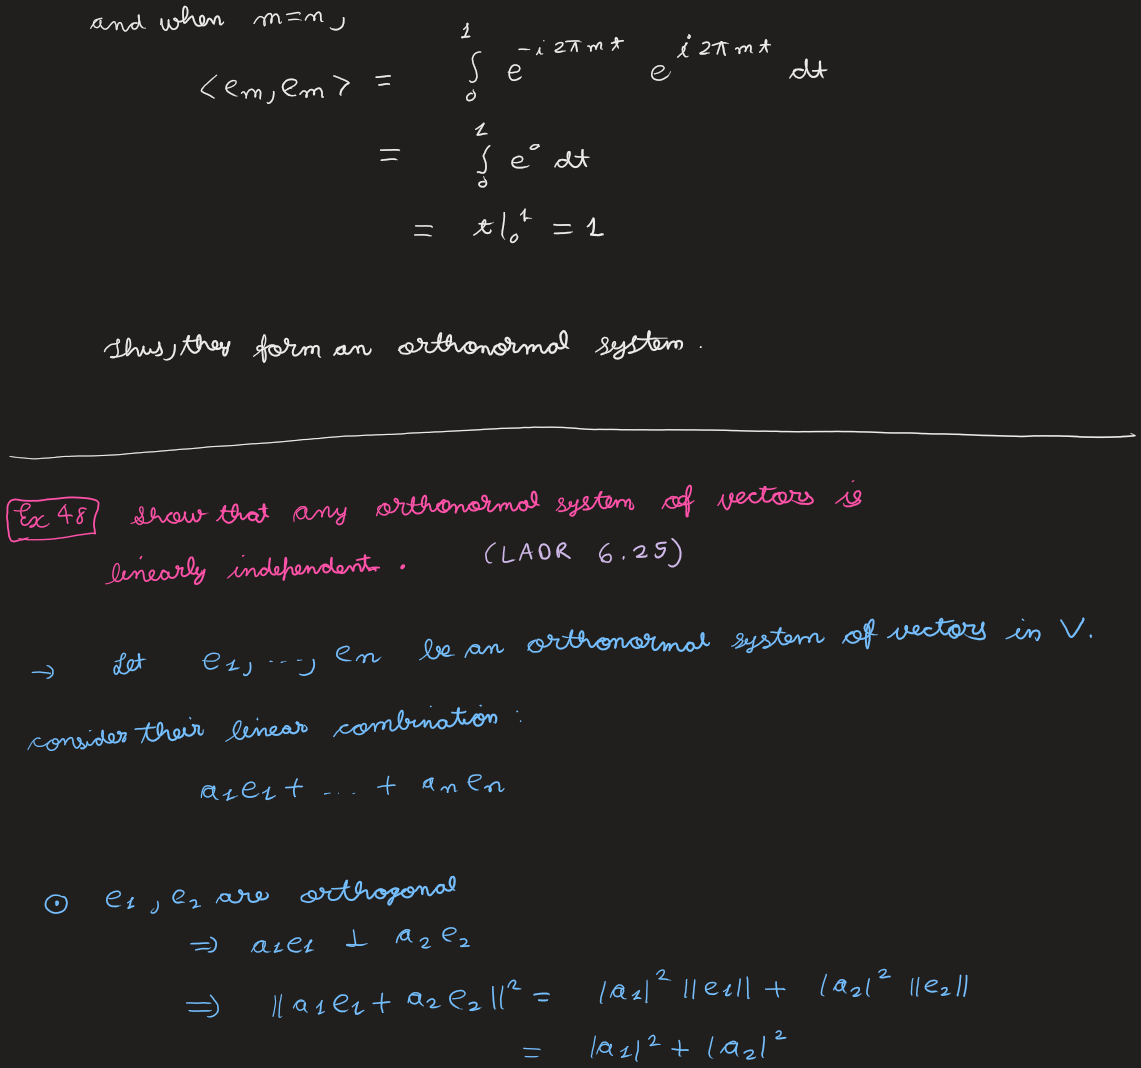 and when m=n,
<em, em> = ∫₀¹ e^{-i2πmt} e^{i2πmt} dt
= ∫₀¹ e⁰ dt
= t|₀¹ = 1
Thus, they form an orthonormal system.
Ex 48 show that any orthonormal system of vectors is
linearly independent. (LADR 6.25)
→ Let e₁, ..., en be an orthonormal system of vectors in V.
consider their linear combination:
a₁e₁ + ... + anen
⊙ e₁, e₂ are orthogonal
⇒ a₁e₁ ⊥ a₂e₂
⇒ ||a₁e₁ + a₂e₂||² = |a₁|² ||e₁|| + |a₂|² ||e₂||
= |a₁|² + |a₂|²